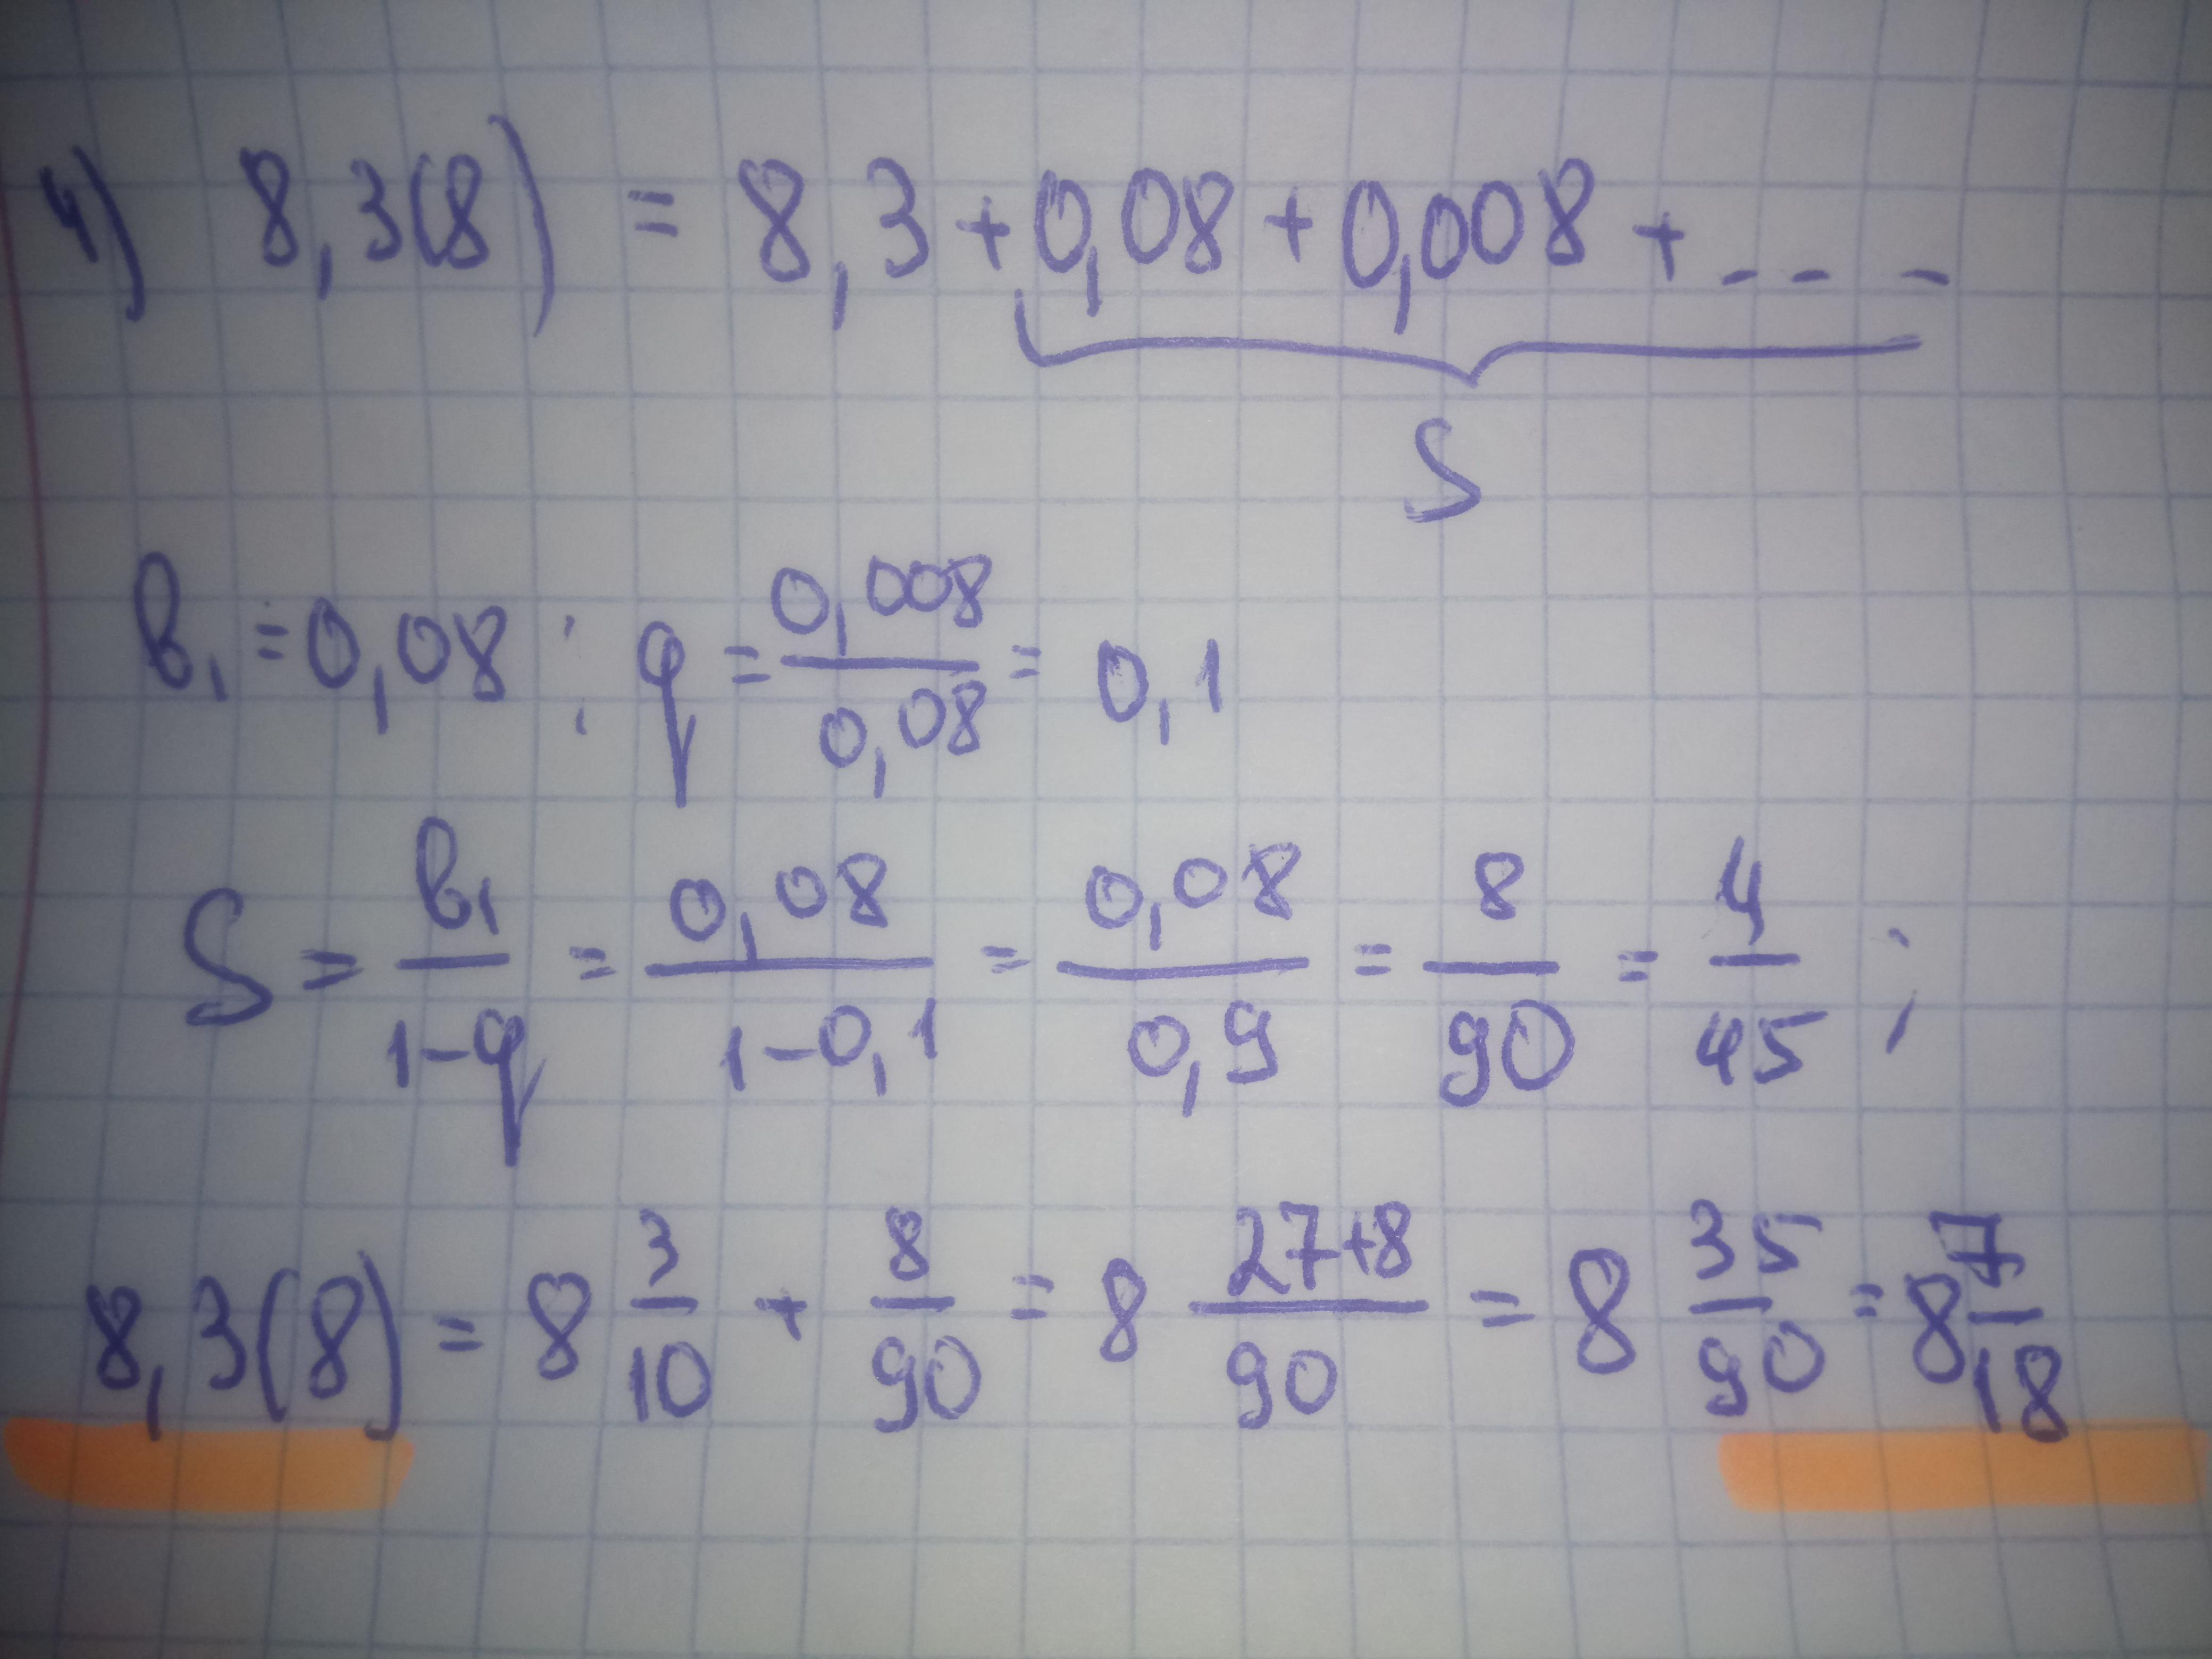 4) 8,3(8) = 8,3 + 0,08 + 0,008 + ...
S
b₁ = 0,08 ; q = 0,008/0,08 = 0,1
S = b₁/(1-q) = 0,08/(1-0,1) = 0,08/0,9 = 8/90 = 4/45 ;
8,3(8) = 8 3/10 + 8/90 = 8 (27+8)/90 = 8 35/90 = 8 7/18